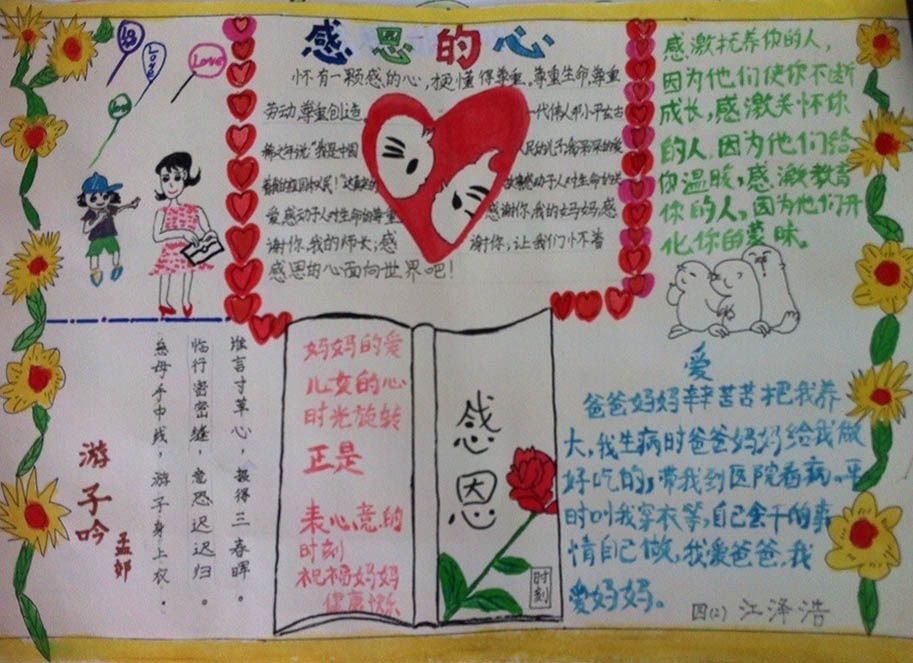 感恩的心
Love
Love
怀有一颗感的心,便懂得尊重。尊重生命尊重
劳动尊重创造, 一代伟人邓小平
稀之年说:"我是中国 人民的儿子我深深的爱
着我的祖国和人民!"
爱感动于人对生命的尊重 感谢你,我的妈妈;感
谢你,我的师长;感 谢你;让我们怀着
感恩的心面向世界吧!
感激抚养你的人,
因为他们使你不断
成长,感激关怀你
的人,因为他们给
你温暖,感激教育
你的人,因为他们开
化你的蒙昧。
游子吟
孟郊
慈母手中线,游子身上衣。
临行密密缝,意恐迟迟归。
谁言寸草心,报得三春晖。
妈妈的爱
儿女的心
时光旋转
正是
表心意的
时刻
祝福妈妈
健康快乐
感恩
时刻
爱
爸爸妈妈辛辛苦苦把我养
大,我生病时爸爸妈妈给我做
好吃的,带我到医院看病。平
时叫我穿衣等,自己会干的事
情自己做,我爱爸爸,我
爱妈妈。
四(2) 江泽浩